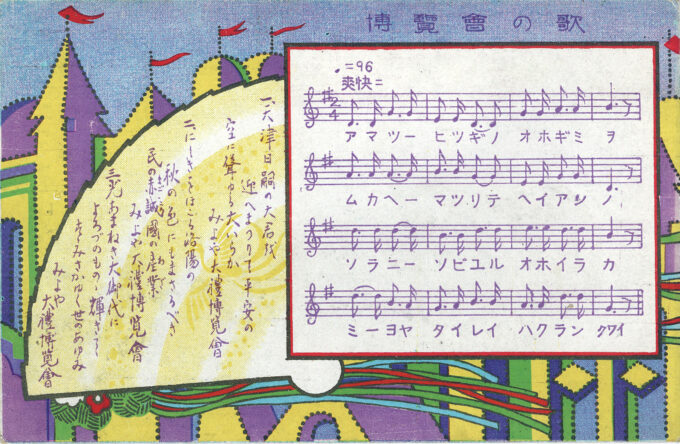 博覽會の歌
♩=96
爽快ニ
アマツー ヒツギノ オホギミ ヲ
ムカヘー マツリテ ヘイアンノ
ソラニー ソビエル オホイラ カ
ミーヨヤ タイレイ ハクラン クワイ
一、天津日嗣の大君を
迎へまつりて平安の
空に聳ゆる大いらか
みよや大禮博覽會
二、にしきをほこる洛陽の
秋の色にもまさるべき
民の赤誠國の産業
みよや大禮博覽會
三、光あまねき大御代に
よろづのもの輝きて
さかゆく世のあゆみ
みよや
大禮博覽會